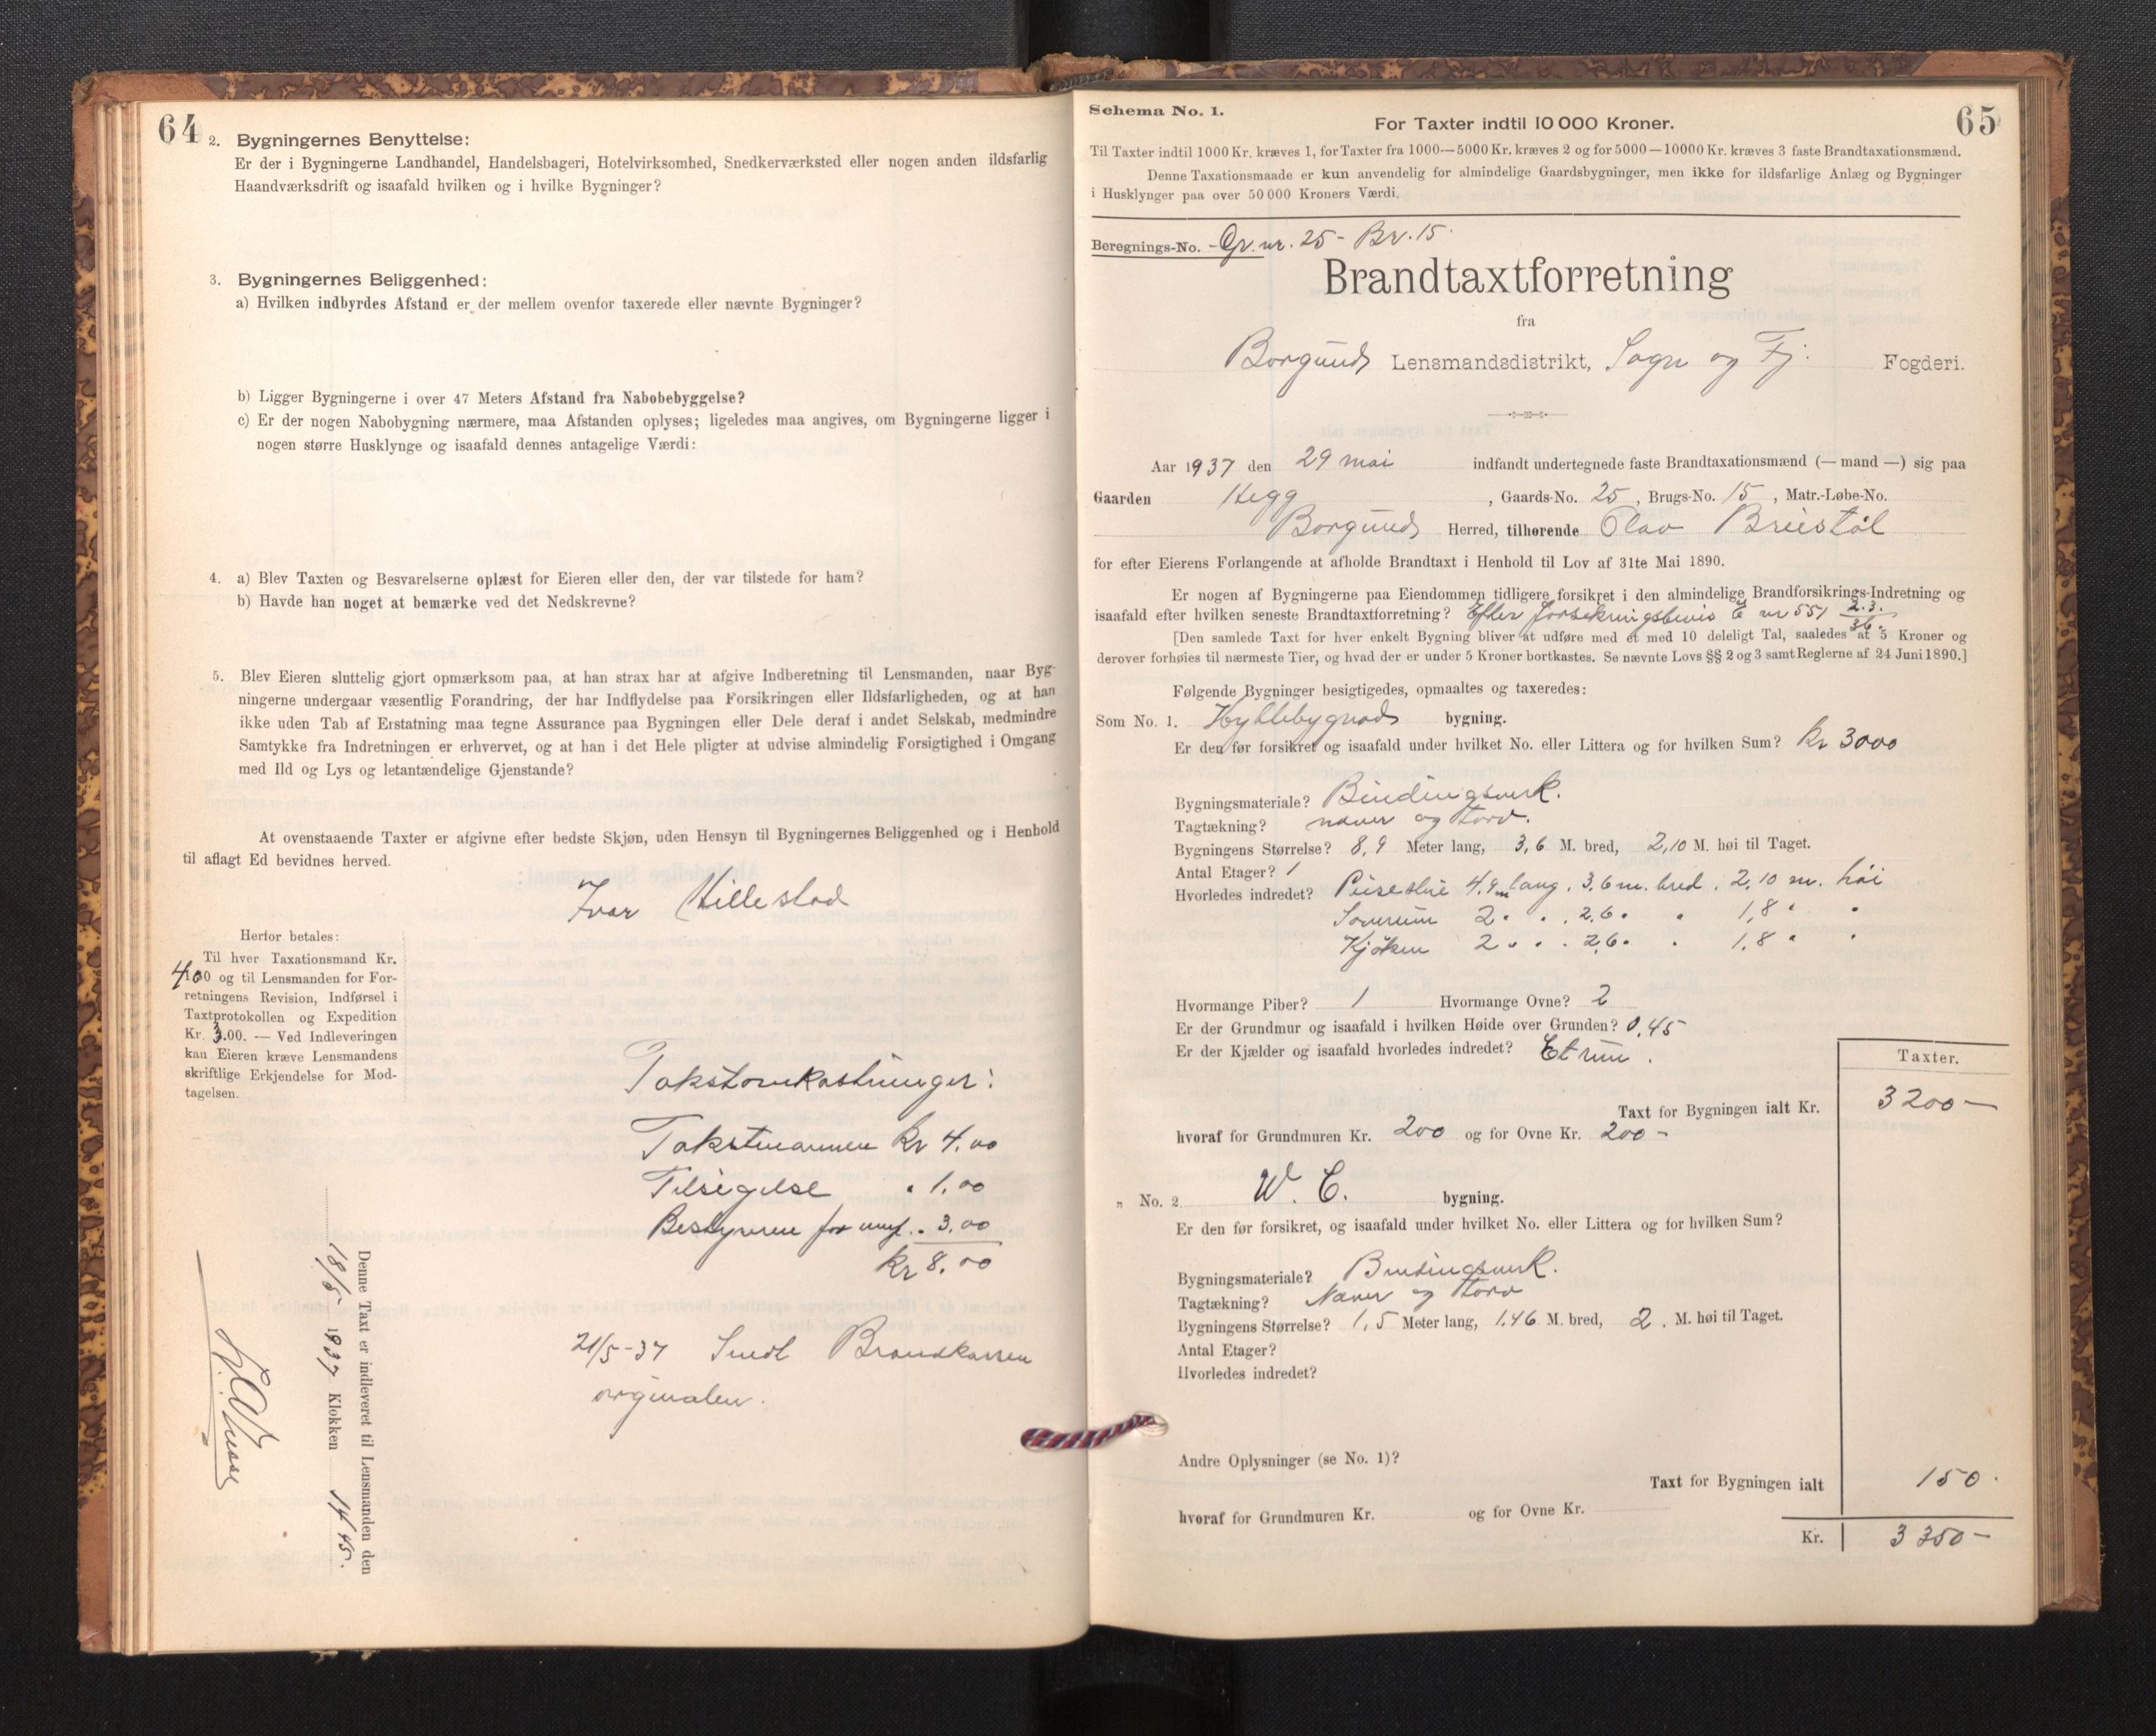 64
2. Bygningernes Benyttelse:
Er der i Bygningerne Landhandel, Handelsbageri, Hotelvirksomhed, Snedkerværksted eller nogen anden ildsfarlig
Haandværksdrift og isaafald hvilken og i hvilke Bygninger?
3. Bygningernes Beliggenhed:
a) Hvilken indbyrdes Afstand er der mellem ovenfor taxerede eller nævnte Bygninger?
b) Ligger Bygningerne i over 47 Meters Afstand fra Nabobebyggelse?
c) Er der nogen Nabobygning nærmere, maa Afstanden oplyses; ligeledes maa angives, om Bygningerne ligger i
nogen større Husklynge og isaafald dennes antagelige Værdi:
4. a) Blev Taxten og Besvarelserne oplæst for Eieren eller den, der var tilstede for ham?
b) Havde han noget at bemærke ved det Nedskrevne?
5. Blev Eieren sluttelig gjort opmærksom paa, at han strax har at afgive Indberetning til Lensmanden, naar Byg-
ningerne undergaar væsentlig Forandring, der har Indflydelse paa Forsikringen eller Ildsfarligheden, og at han
ikke uden Tab af Erstatning maa tegne Assurance paa Bygningen eller Dele deraf i andet Selskab, medmindre
Samtykke fra Indretningen er erhvervet, og at han i det Hele pligter at udvise almindelig Forsigtighed i Omgang
med Ild og Lys og letantændelige Gjenstande?
At ovenstaaende Taxter er afgivne efter bedste Skjøn, uden Hensyn til Bygningernes Beliggenhed og i Henhold
til aflagt Ed bevidnes herved.
Ivar Hillestad
Herfor betales:
Til hver Taxationsmand Kr.
4.00 og til Lensmanden for For-
retningens Revision, Indførsel i
Taxtprotokollen og Expedition
Kr. 3.00. — Ved Indleveringen
kan Eieren kræve Lensmandens
skriftlige Erkjendelse for Mod-
tagelsen.
Takstomkostninger:
Takstmannen Kr 4.00
Tilsigelse " 1.00
Bestyreren for innf. " 3.00
Kr 8.00
21/5-37 Sendt Brandkassen
orginalen.
Denne Taxt er indleveret til Lensmanden den
18/5 1937 Klokken 14 45.
Schema No. 1.
65
For Taxter indtil 10000 Kroner.
Til Taxter indtil 1000 Kr. kræves 1, for Taxter fra 1000—5000 Kr. kræves 2 og for 5000—10000 Kr. kræves 3 faste Brandtaxationsmænd.
Denne Taxationsmaade er kun anvendelig for almindelige Gaardsbygninger, men ikke for ildsfarlige Anlæg og Bygninger
i Husklynger paa over 50000 Kroners Værdi.
Beregnings-No. - Gr. nr. 25 - Br. 15.
Brandtaxtforretning
fra
Borgund Lensmandsdistrikt, Sogn og Fj. Fogderi.
Aar 1937 den 29 mai indfandt undertegnede faste Brandtaxationsmænd (— mand —) sig paa
Gaarden Hegg, Gaards-No. 25, Brugs-No. 15, Matr.-Løbe-No.
Borgund Herred, tilhørende Olav Breistøl
for efter Eierens Forlangende at afholde Brandtaxt i Henhold til Lov af 31te Mai 1890.
Er nogen af Bygningerne paa Eiendommen tidligere forsikret i den almindelige Brandforsikrings-Indretning og
isaafald efter hvilken seneste Brandtaxtforretning? Efter forsikringsbevis E nr 551 2.3.
36.
[Den samlede Taxt for hver enkelt Bygning bliver at udføre med et med 10 deleligt Tal, saaledes at 5 Kroner og
derover forhøies til nærmeste Tier, og hvad der er under 5 Kroner bortkastes. Se nævnte Lovs §§ 2 og 3 samt Reglerne af 24 Juni 1890.]
Følgende Bygninger besigtigedes, opmaaltes og taxeredes:
Som No. 1. Hyttebygnads bygning.
Er den før forsikret og isaafald under hvilket No. eller Littera og for hvilken Sum? Kr 3000
Bygningsmateriale? Bindingsverk.
Tagtækning? never og torv.
Bygningens Størrelse? 8,9 Meter lang, 3,6 M. bred, 2,10 M. høi til Taget.
Antal Etager? 1
Hvorledes indredet? Peisestue 4.9 m lang. 3.6 m. bred. 2,10 m. høi
Soverum 2 " " 2.6 " " 1,8 " "
Kjøken 2 " " 2,6 " " 1,8 " "
Hvormange Piber? 1 Hvormange Ovne? 2
Er der Grundmur og isaafald i hvilken Høide over Grunden? 0,45
Er der Kjælder og isaafald hvorledes indredet? Et rum.
Taxter.
Taxt for Bygningen ialt Kr. 3200—
hvoraf for Grundmuren Kr. 200 og for Ovne Kr. 200 -
" No. 2 W. C. bygning.
Er den før forsikret, og isaafald under hvilket No. eller Littera og for hvilken Sum?
Bygningsmateriale? Bindingsverk.
Tagtækning? Never og torv
Bygningens Størrelse? 1,5 Meter lang, 1.46 M. bred, 2. M. høi til Taget.
Antal Etager?
Hvorledes indredet?
Andre Oplysninger (se No. 1)?
Taxt for Bygningen ialt 150.
hvoraf for Grundmuren Kr. og for Ovne Kr.
Kr. 3350—